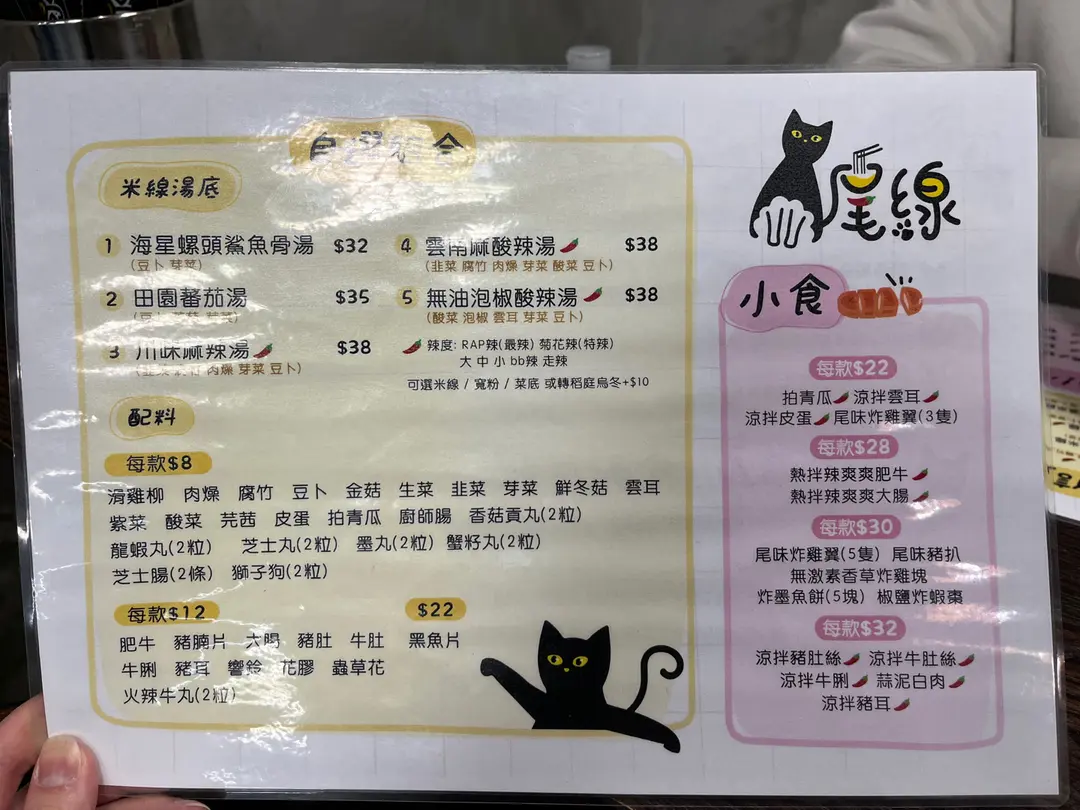 尾線
米線湯底
1 海星螺頭鯊魚骨湯 $32
(豆卜 芽菜)
2 田園蕃茄湯 $35
3 川味麻辣湯 $38
肉燥 芽菜 豆卜)
4 雲南麻酸辣湯 $38
(韭菜 腐竹 肉燥 芽菜 酸菜 豆卜)
5 無油泡椒酸辣湯 $38
(酸菜 泡椒 雲耳 芽菜 豆卜)
辣度: RAP辣(最辣) 菊花辣(特辣)
大 中 小 bb辣 走辣
可選米線 / 寬粉 / 菜底 或轉稻庭烏冬+$10
配料
每款$8
滑雞柳 肉燥 腐竹 豆卜 金菇 生菜 韭菜 芽菜 鮮冬菇 雲耳
紫菜 酸菜 芫茜 皮蛋 拍青瓜 廚師腸 香菇貢丸(2粒)
龍蝦丸(2粒) 芝士丸(2粒) 墨丸(2粒) 蟹籽丸(2粒)
芝士腸(2條) 獅子狗(2粒)
每款$12
肥牛 豬腩片 大腸 豬肚 牛肚
牛脷 豬耳 響鈴 花膠 蟲草花
火辣牛丸(2粒)
$22
黑魚片
小食
每款$22
拍青瓜 涼拌雲耳
涼拌皮蛋 尾味炸雞翼(3隻)
每款$28
熱拌辣爽爽肥牛
熱拌辣爽爽大腸
每款$30
尾味炸雞翼(5隻) 尾味豬扒
無激素香草炸雞塊
炸墨魚餅(5塊) 椒鹽炸蝦棗
每款$32
涼拌豬肚絲 涼拌牛肚絲
涼拌牛脷 蒜泥白肉
涼拌豬耳